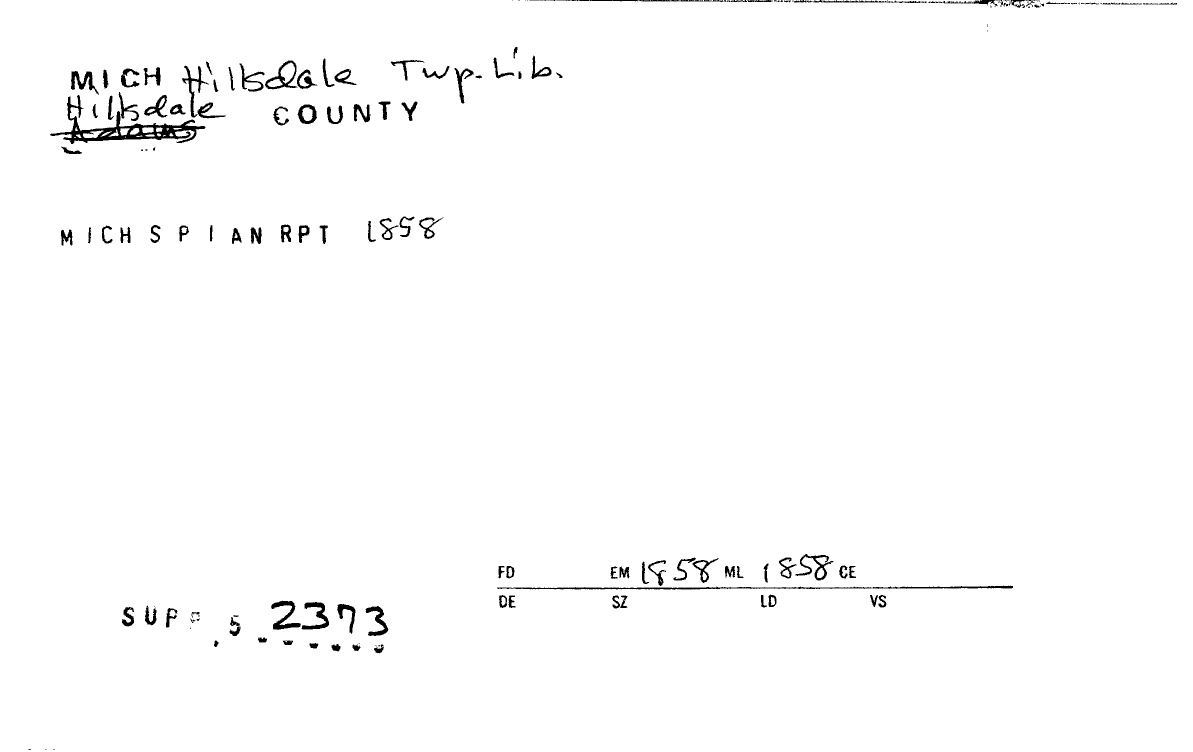 MICH Hillsdale Twp. Lib.
Hillsdale COUNTY
Adams
MICH S P I AN RPT 1858
FD EM 1858 ML 1858 CE
DE SZ LD VS
SUPP 5 2373